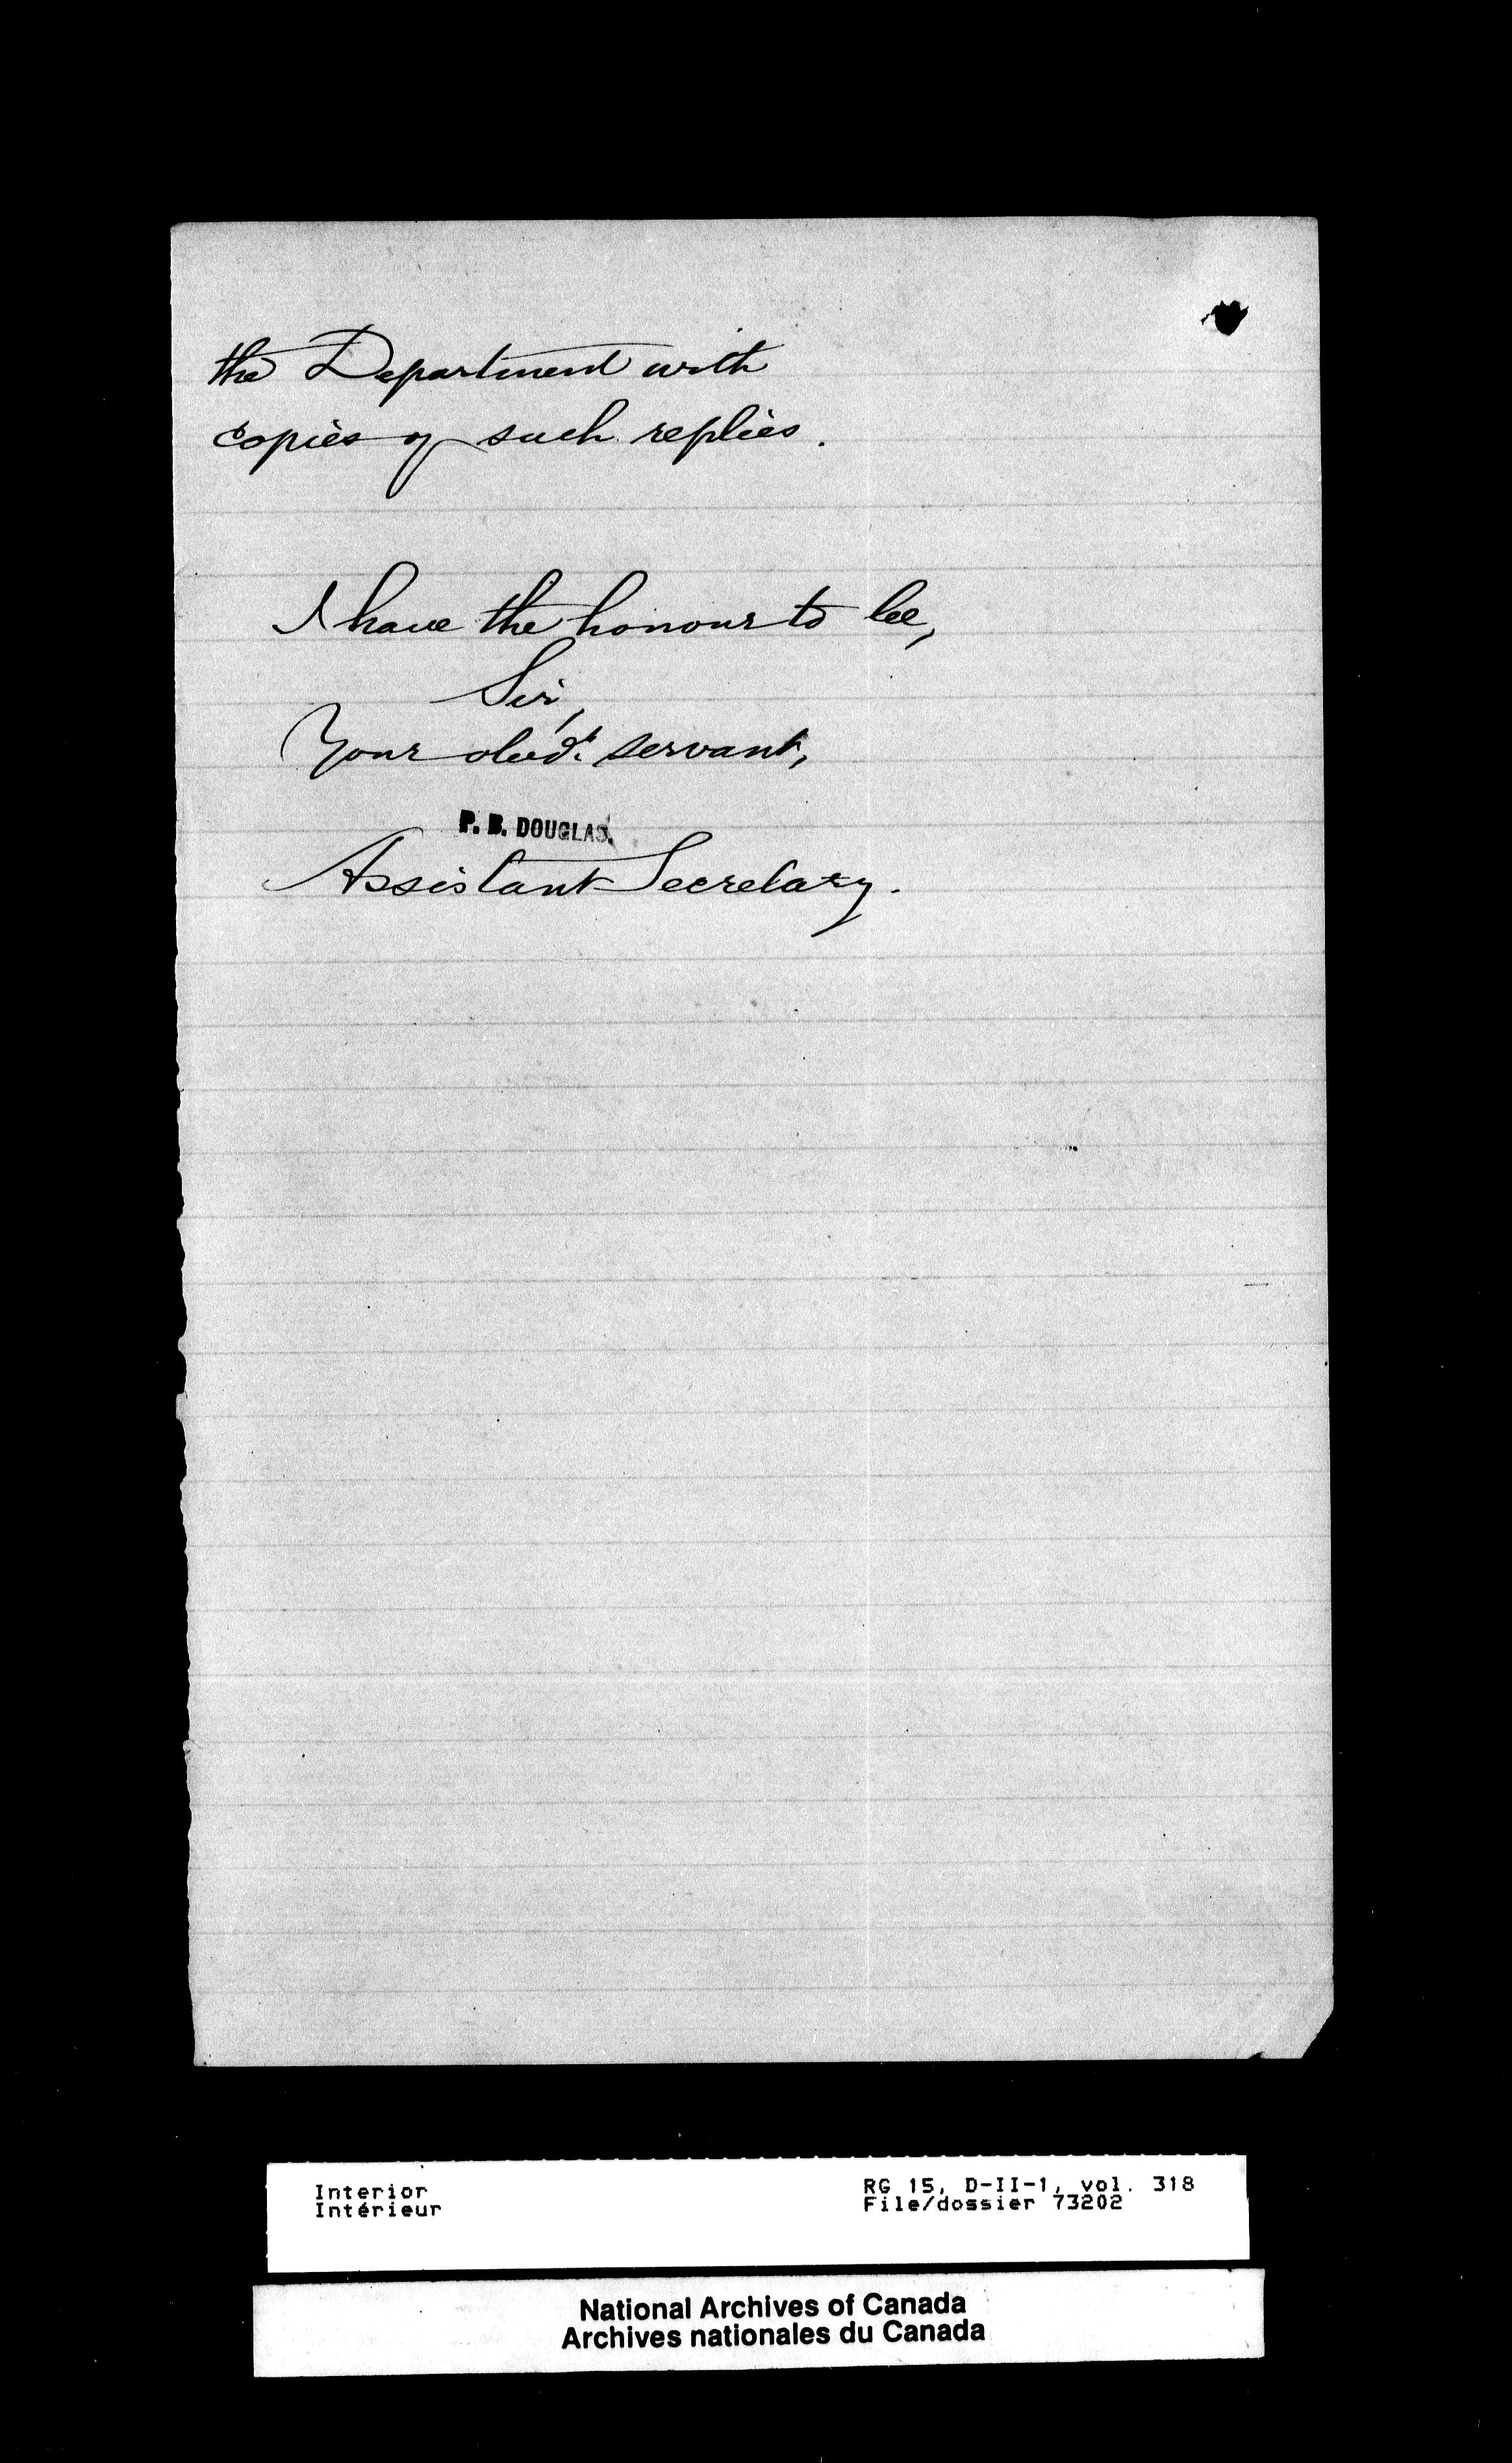 the Department with
copies of such replies.
I have the honour to be,
Sir,
Your obedt. servant,
P. B. DOUGLAS.
Assistant Secretary.
Interior
Intérieur
RG 15, D-II-1, vol. 318
File/dossier 73202
National Archives of Canada
Archives nationales du Canada